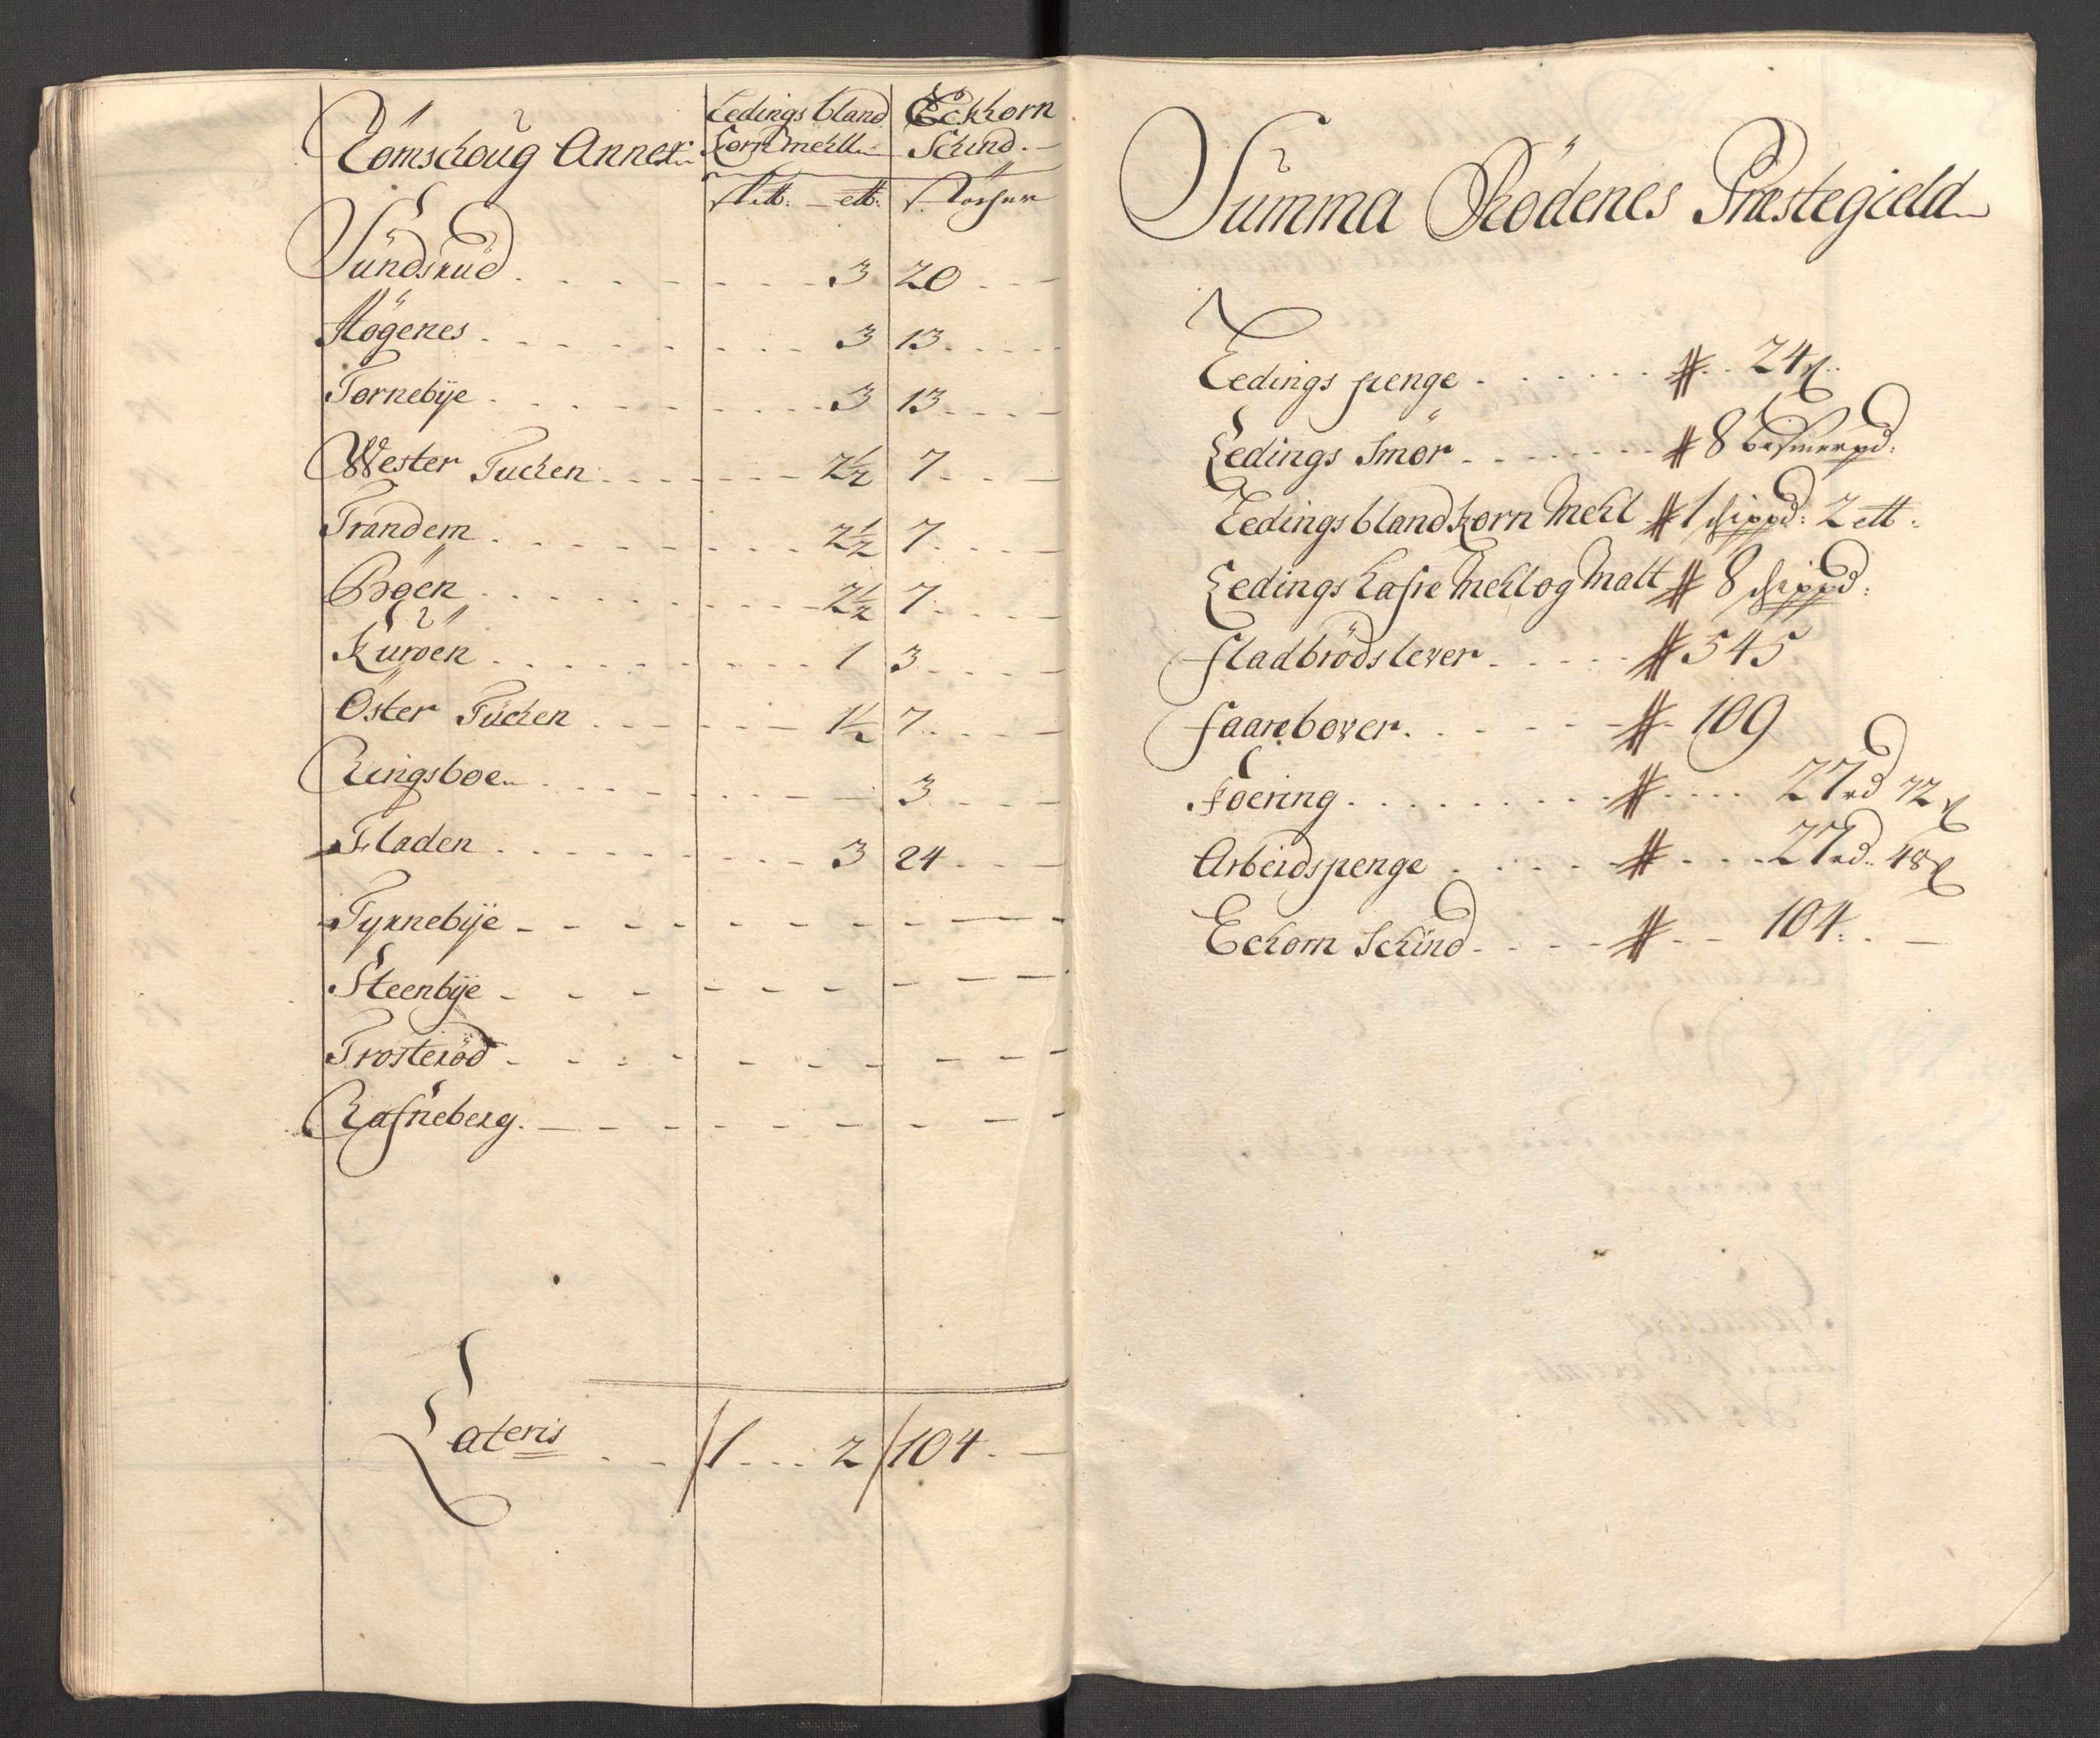 Römschoug Annex
Ledings bland Korn mehll
Eckhorn Schind.
Sundsrud 3 20
Högenes 3 13
Tørnebÿe 3 13
Wester Tuchen 2½ 7
Trandem 2½ 7
Böen 2½ 7
Kuröen 1 3
Öster Tuchen 1½ 7
Ringsboe 3
Fladen 3 24
Tyrnebÿe
Steenbÿe
Trosteröd
Rafneberg.
Lateris 1 2 104
Summa Rödenes Præstegield
Ledings penge 24
Ledings Smör 8 bismerpd:
Ledings bland korn Mehl 1 schippd: 2 ett.
Ledings hafre Mehl og Malt 8 schippd:
fladbröds lever 545
faarebover 109
Foering 27 rd 72
Arbeidspenge 27 rd. 48
Echorn Schind 104.